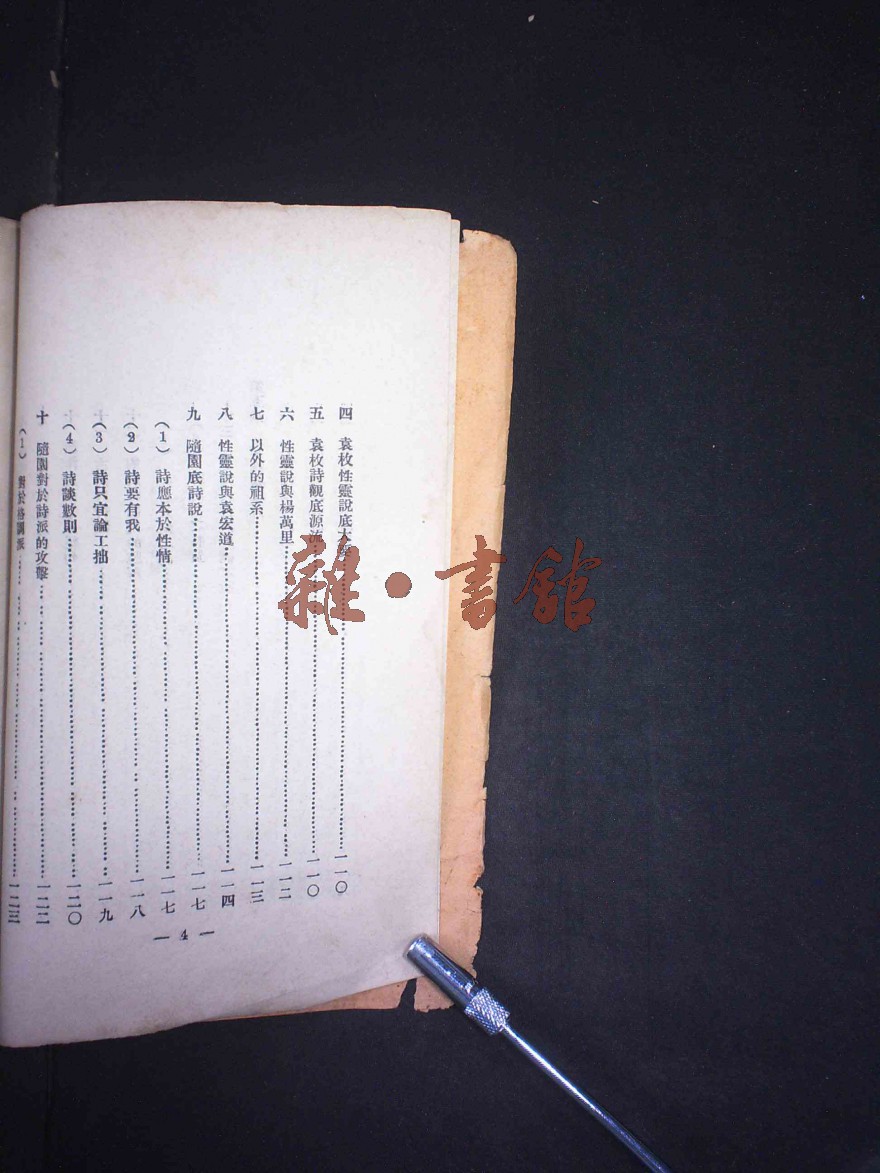 四 袁枚性靈說底大 一一〇
五 袁枚詩觀底源流 一一〇
六 性靈說與楊萬里 一一二
七 以外的祖系 一一三
八 性靈說與袁宏道 一一四
九 隨園底詩說 一一七
(1) 詩應本於性情 一一七
(2) 詩要有我 一一八
(3) 詩只宜論工拙 一一九
(4) 詩談數則 一二〇
十 隨園對於詩派的攻擊 一二二
(1) 對於格調派 一二三
— 4 —
雜·書館